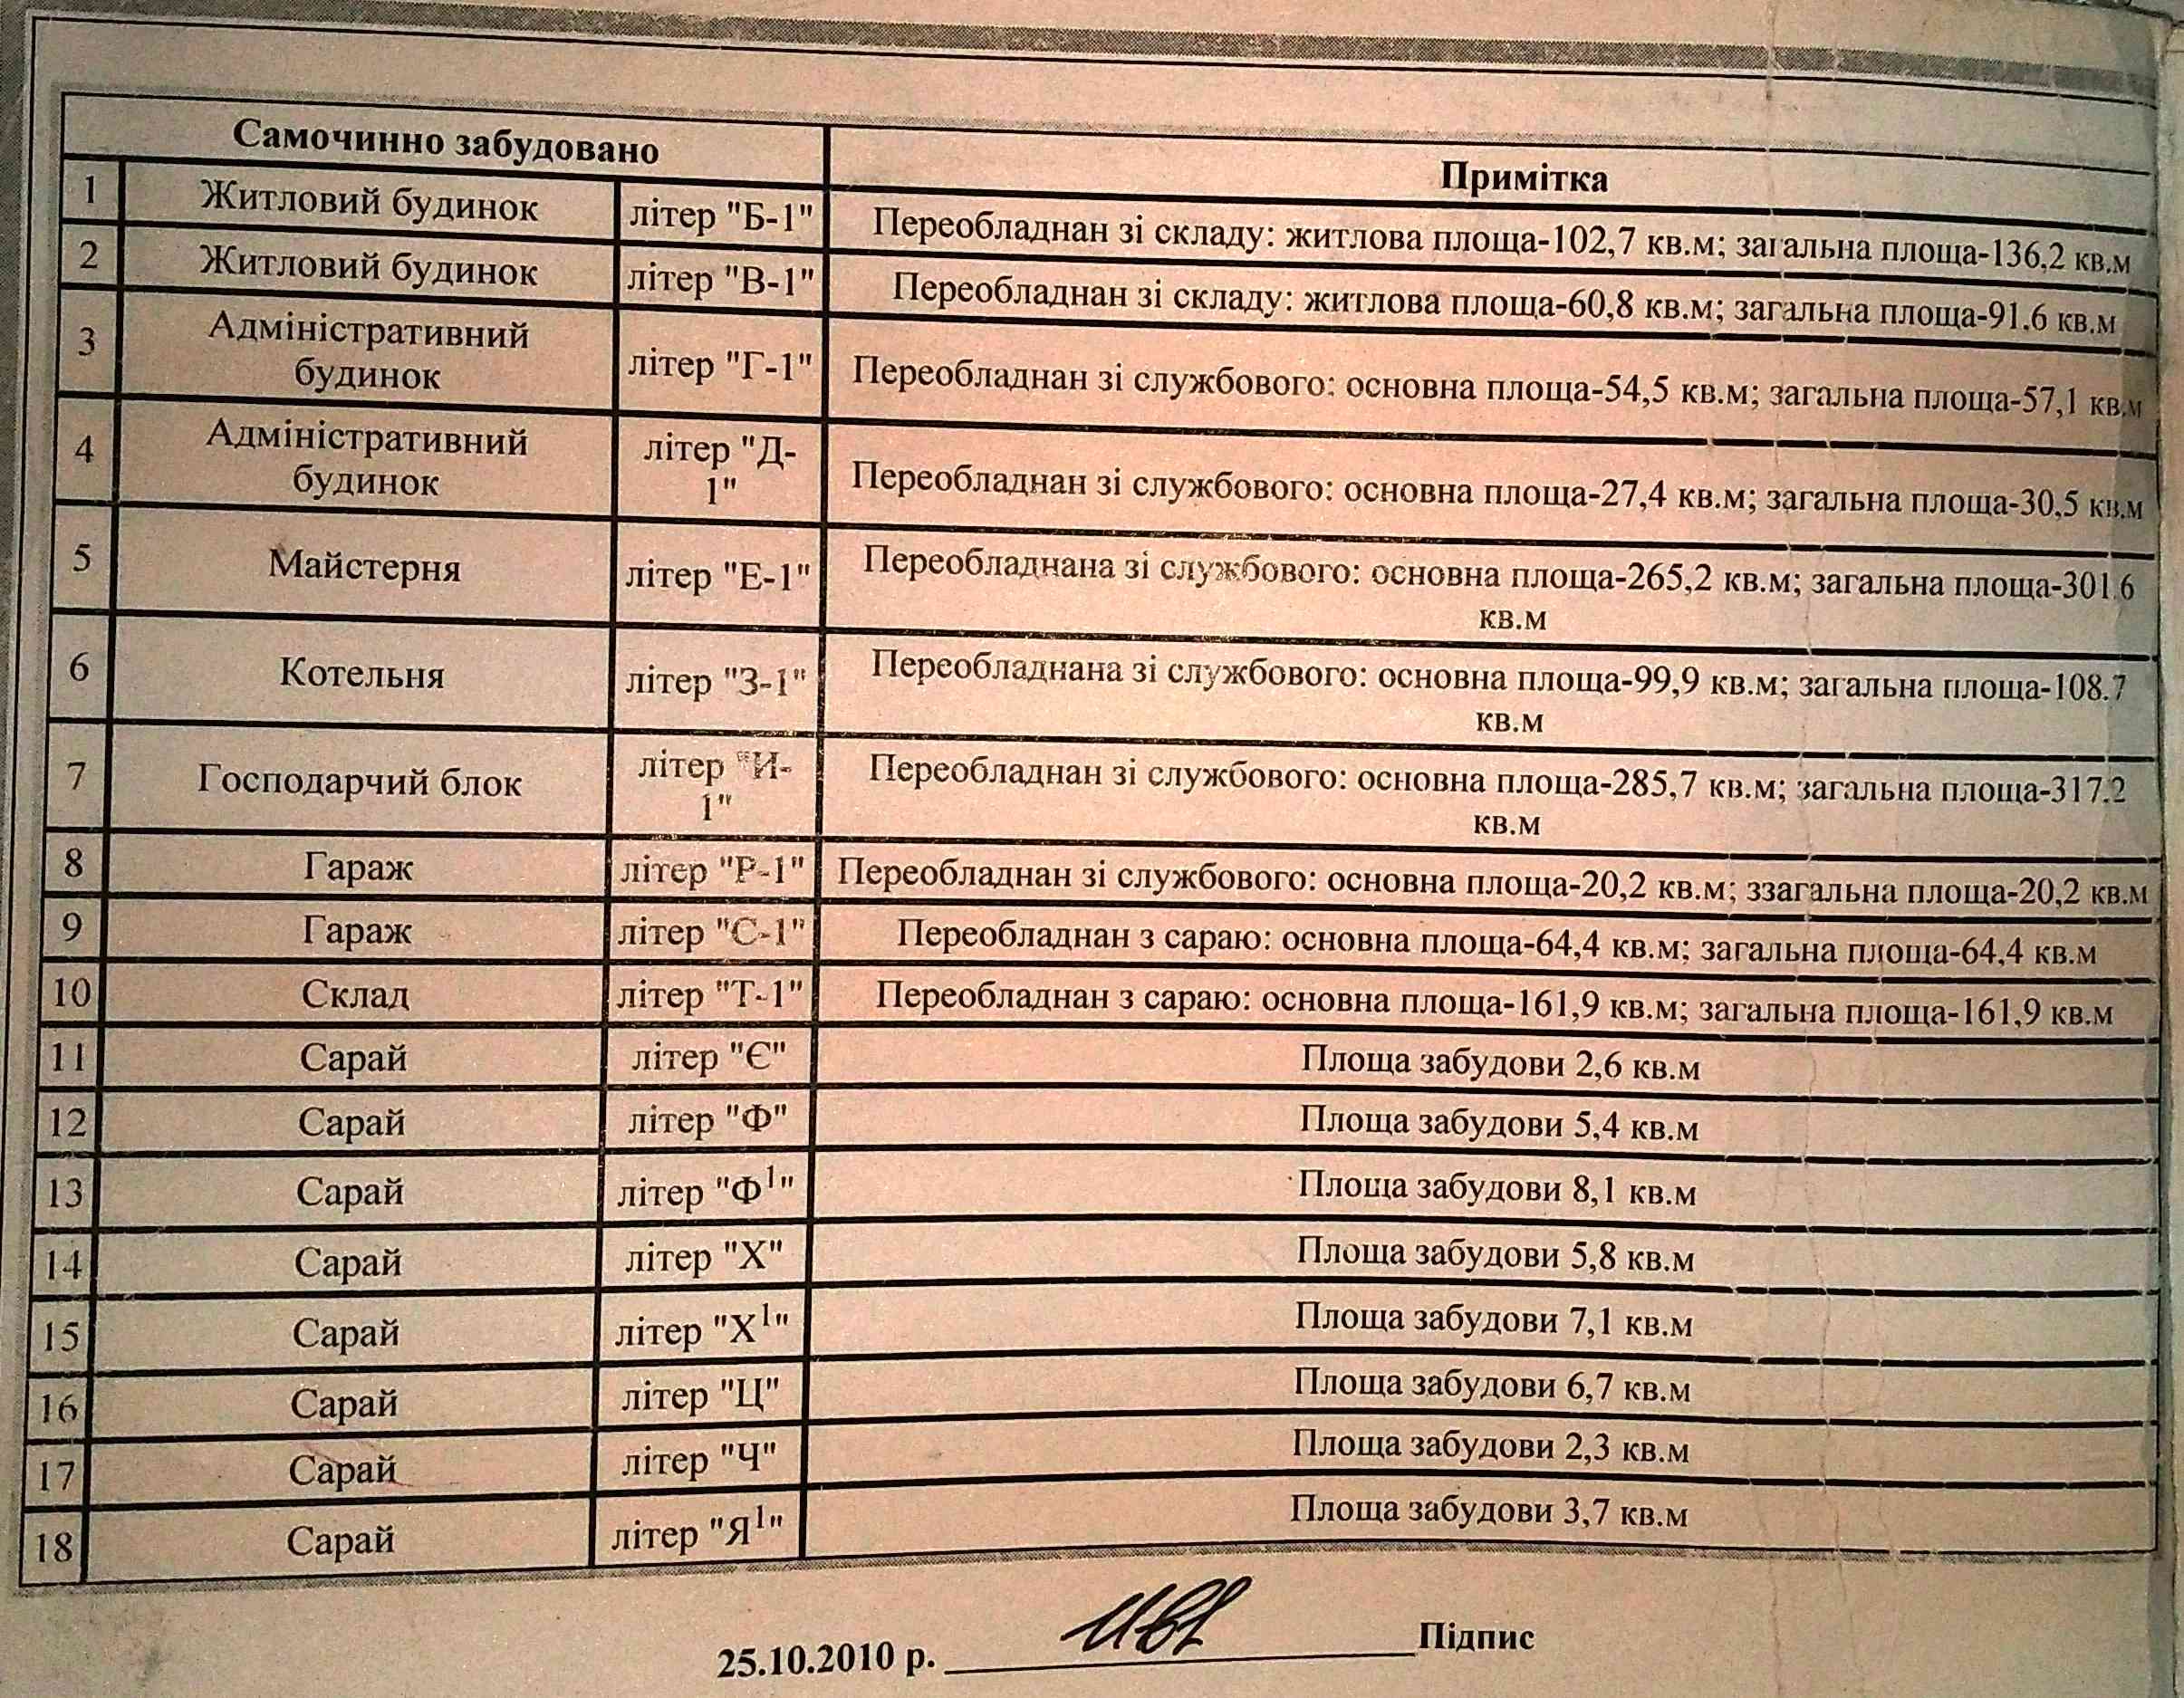 Самочинно забудовано
Примітка
1 Житловий будинок літер "Б-1" Переобладнан зі складу: житлова площа-102,7 кв.м; загальна площа-136,2 кв.м
2 Житловий будинок літер "В-1" Переобладнан зі складу: житлова площа-60,8 кв.м; загальна площа-91.6 кв.м
3 Адміністративний
будинок літер "Г-1" Переобладнан зі службового: основна площа-54,5 кв.м; загальна площа-57,1 кв.м
4 Адміністративний
будинок
літер "Д-
1"
Переобладнан зі службового: основна площа-27,4 кв.м; загальна площа-30,5 кв.м
5 Майстерня літер "Е-1" Переобладнана зі службового: основна площа-265,2 кв.м; загальна площа-301.6
кв.м
6 Котельня літер "З-1" Переобладнана зі службового: основна площа-99,9 кв.м; загальна площа-108.7
кв.м
7 Господарчий блок
літер "И-
1"
Переобладнан зі службового: основна площа-285,7 кв.м; загальна площа-317.2
кв.м
8 Гараж літер "Р-1" Переобладнан зі службового: основна площа-20,2 кв.м; ззагальна площа-20,2 кв.м
9 Гараж літер "С-1" Переобладнан з сараю: основна площа-64,4 кв.м; загальна площа-64,4 кв.м
10 Склад літер "Т-1" Переобладнан з сараю: основна площа-161,9 кв.м; загальна площа-161,9 кв.м
11 Сарай літер "Є" Площа забудови 2,6 кв.м
12 Сарай літер "Ф" Площа забудови 5,4 кв.м
13 Сарай літер "Ф¹" Площа забудови 8,1 кв.м
14 Сарай літер "Х" Площа забудови 5,8 кв.м
15 Сарай літер "Х¹" Площа забудови 7,1 кв.м
16 Сарай літер "Ц" Площа забудови 6,7 кв.м
17 Сарай літер "Ч" Площа забудови 2,3 кв.м
18 Сарай літер "Я¹" Площа забудови 3,7 кв.м
25.10.2010 р. Підпис